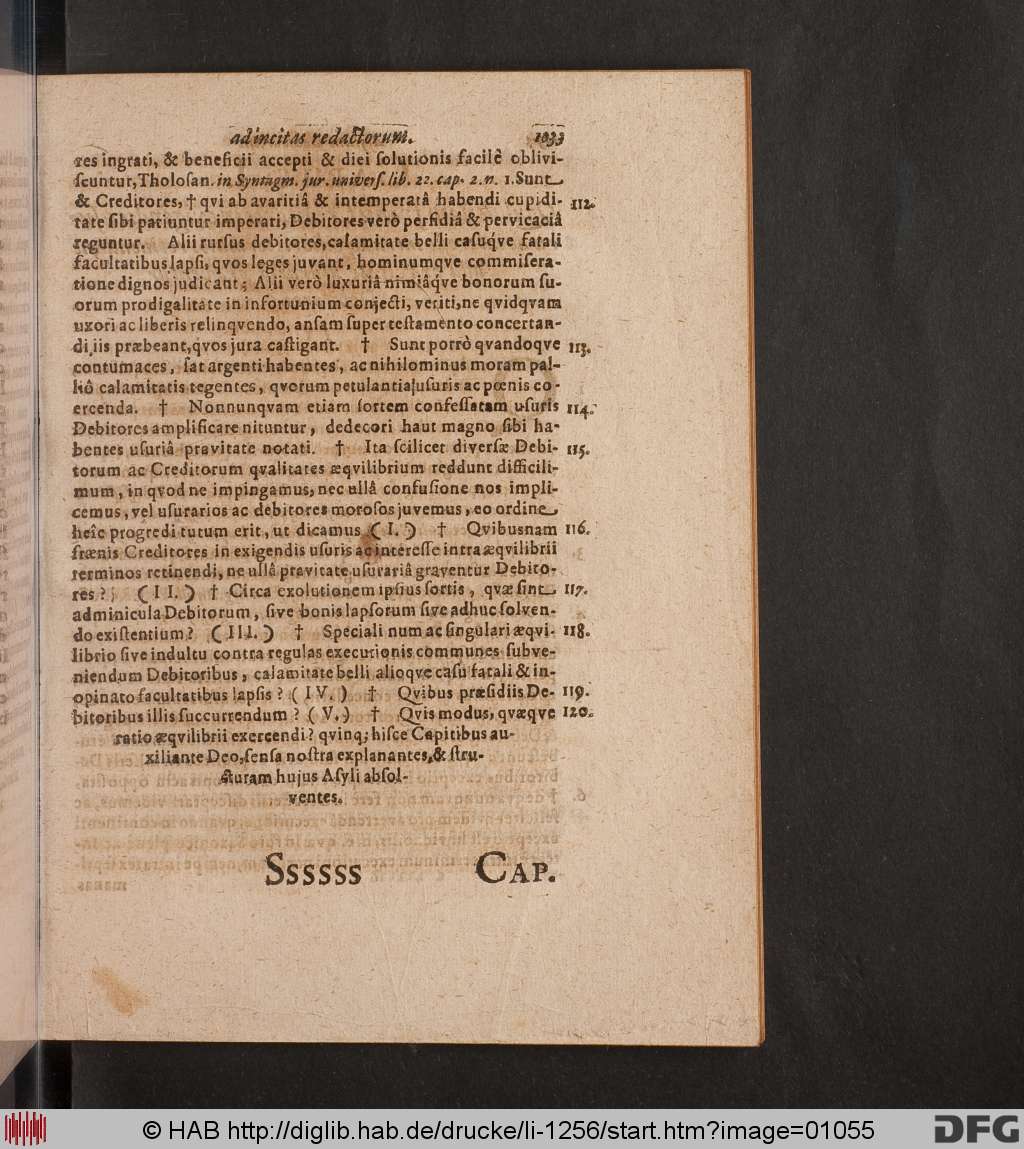 ad incitas redactorum. 1033
res ingrati, & beneficii accepti & diei ſolutionis facilè oblivi-
ſcuntur, Tholoſan. in Syntagm. jur. univerſ. lib. 22. cap. 2. n. 1. Sunt
& Creditores, † qvi ab avaritiâ & intemperatâ habendi cupidi- 112.
tate ſibi patiuntur imperari, Debitores verò perfidiâ & pervicaciâ
reguntur. Alii rurſus debitores, calamitate belli caſuq́ve fatali
facultatibus lapſi, qvos leges juvant, hominumqve commiſera-
tione dignos judicant; Alii verò luxuriâ nimiâq́ve bonorum ſu-
orum prodigalitate in infortunium conjecti, veriti, ne qvidqvam
uxori ac liberis relinqvendo, anſam ſuper teſtamento concertan-
di, iis præbeant, qvos jura caſtigant. † Sunt porrò qvandoqve 113.
contumaces, ſat argenti habentes, ac nihilominus moram pal-
liô calamitatis tegentes, qvorum petulantia uſuris ac pœnis co-
ercenda. † Nonnunqvam etiam ſortem confeſſatam uſuris 114.
Debitores amplificare nituntur, dedecori haut magno ſibi ha-
bentes uſuriâ pravitate notati. † Ita ſcilicet diverſæ Debi- 115.
torum ac Creditorum qvalitates æqvilibrium reddunt difficili-
mum, in qvod ne impingamus, nec ullâ confuſione nos impli-
cemus, vel uſurarios ac debitores moroſos juvemus, eo ordine
heîc progredi tutum erit, ut dicamus (I.) † Qvibusnam 116.
frænis Creditores in exigendis uſuris ac intereſſe intra æqvilibrii
terminos retinendi, ne ullâ pravitate uſurariâ graventur Debito-
res? (II.) † Circa exolutionem ipſius ſortis, qvæ ſint 117.
adminicula Debitorum, ſive bonis lapſorum ſive adhuc ſolven-
do exiſtentium? (III.) † Speciali num ac ſingulari æqvi- 118.
librio ſive indultu contra regulas executionis communes ſubve-
niendum Debitoribus, calamitate belli alioqve caſu fatali & in-
opinato facultatibus lapſis? (IV.) † Qvibus præſidiis De- 119.
bitoribus illis ſuccurrendum? (V.) † Qvis modus, qvæqve 120.
ratio æqvilibrii exercendi? qvinq; hiſce Capitibus au-
xiliante Deo, ſenſa noſtra explanantes, & ſtru-
cturam hujus Aſyli abſol-
ventes.
Ssssss CAP.
© HAB http://diglib.hab.de/drucke/li-1256/start.htm?image=01055
DFG